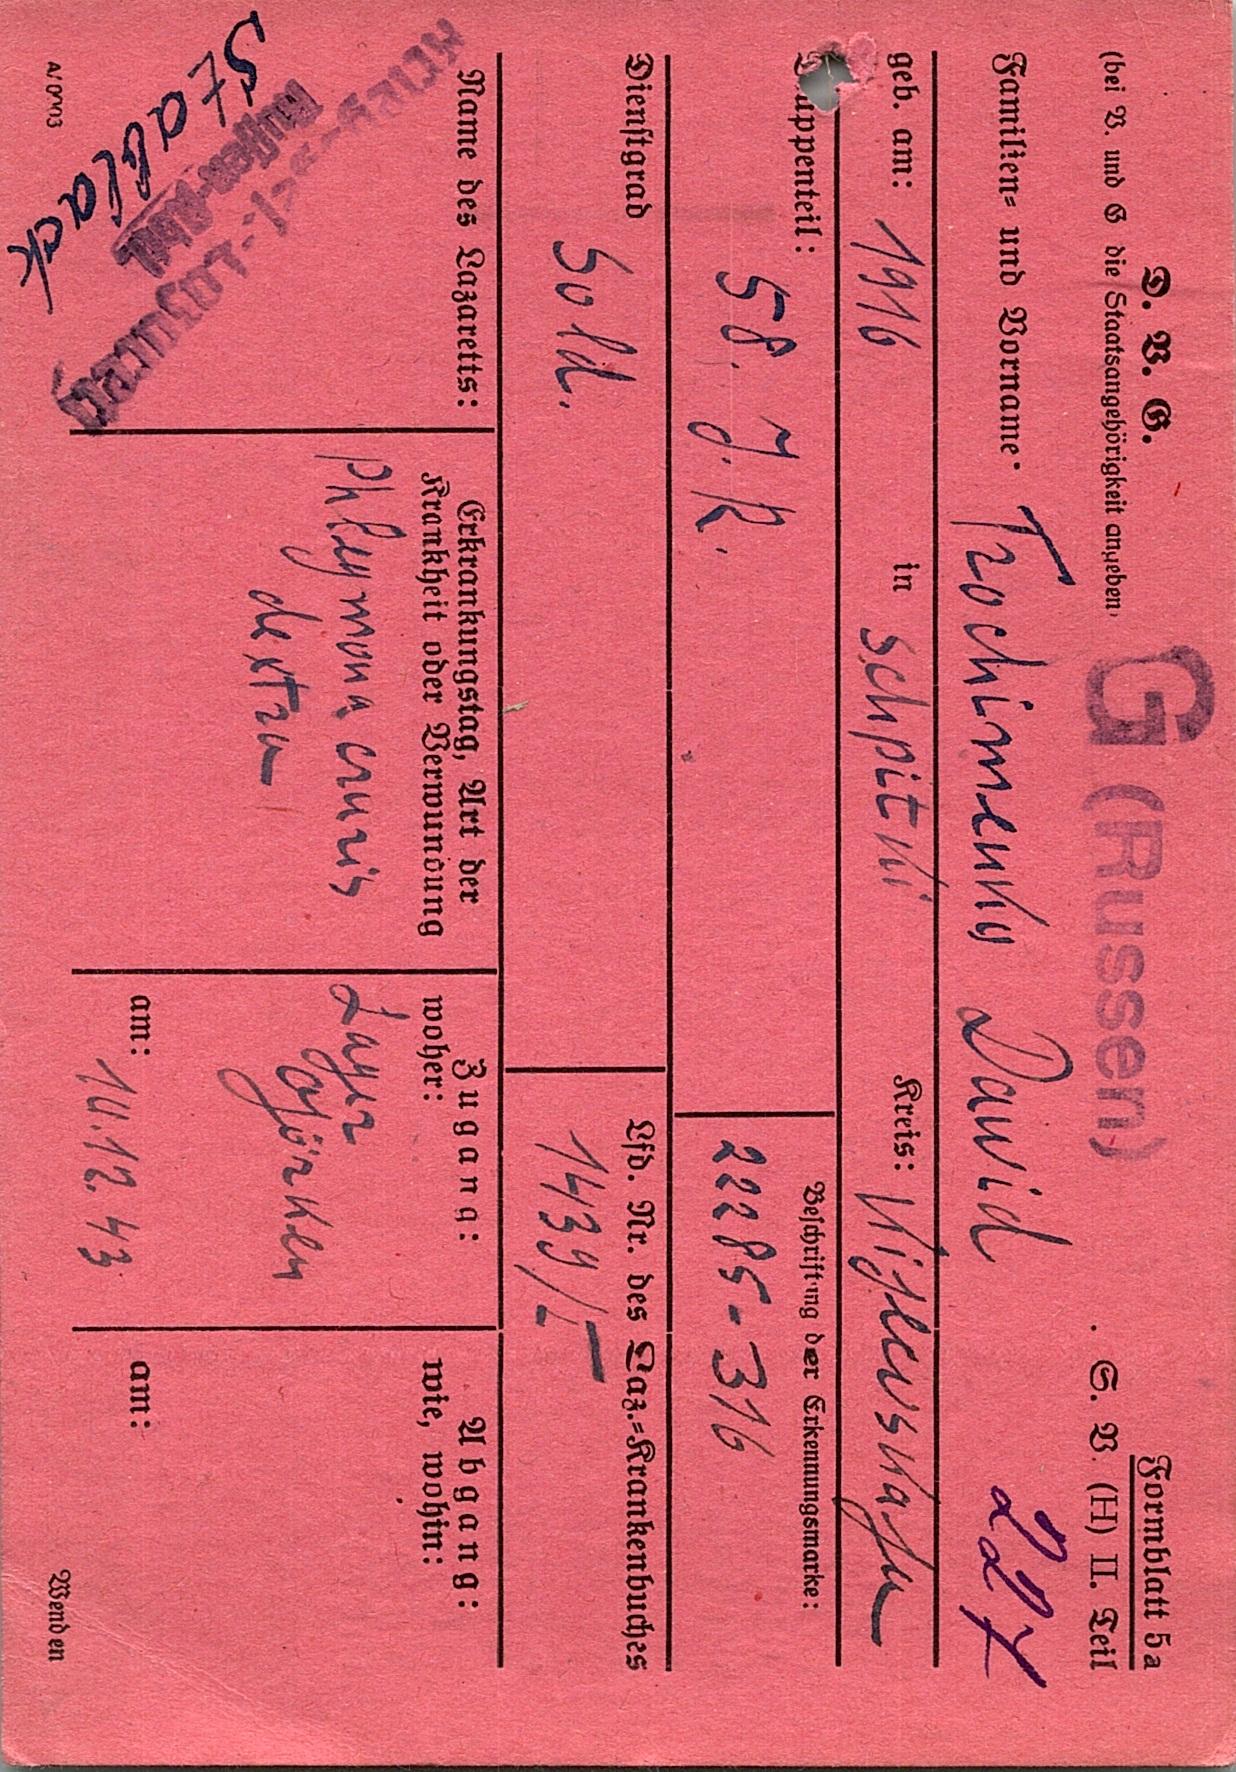 D. V. G.
(bei V. und G die Staatsangehörigkeit angeben)
G (Russen)
Formblatt 5a
S. V. (H) II. Teil
227
Familien= und Vorname: Trochimenko Dawid
geb. am: 1916 in Schpitki Kreis:
Truppenteil: 58. J. R.
Beschriftung der Erkennungsmarke:
22285-316
Dienstgrad Sold.
Lfd. Nr. des Laz.=Krankenbuches
1439/I
Name des Lazaretts:
Russen-Abtl.
Stablack
Erkrankungstag, Art der
Krankheit oder Verwundung
Phlegmona cruris
dextra
Zugang:
woher:
Lager
Görken
am: 10.12.43
Abgang:
wie, wohin:
am:
Wenden